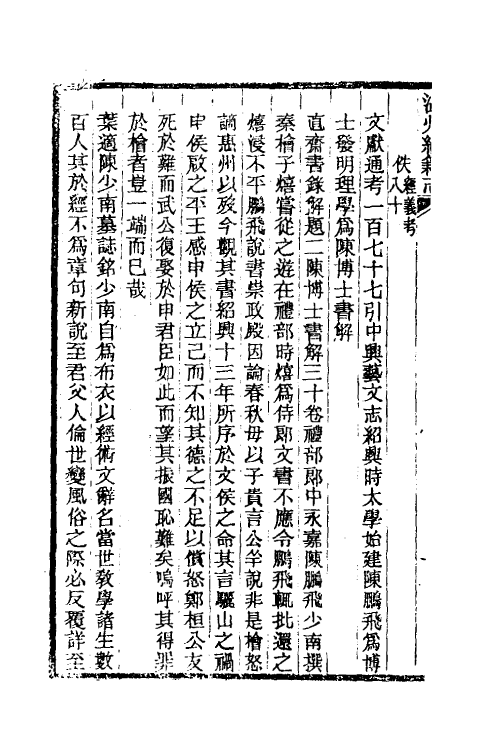 溫州經籍志
佚經義考
八十
文獻通考一百七十七引中興藝文志紹興時太學始建陳鵬飛爲博
士發明理學爲陳博士書解
直齋書錄解題二陳博士書解三十卷禮部郎中永嘉陳鵬飛少南撰
秦檜子熺嘗從之遊在禮部時熺爲侍郎文書不應令鵬飛輒批還之
熺浸不平鵬飛說書崇政殿因論春秋母以子貴言公羊說非是檜怒
謫惠州以歿今觀其書紹興十三年所序於文侯之命其言驪山之禍
申侯啟之平王感申侯之立己而不知其德之不足以償怨鄭桓公友
死於難而武公復娶於申君臣如此而望其振國恥難矣嗚呼其得罪
於檜者豈一端而已哉
葉適陳少南墓誌銘少南自爲布衣以經術文辭名當世敎學諸生數
百人其於經不爲章句新說至君父人倫世變風俗之際必反覆詳至